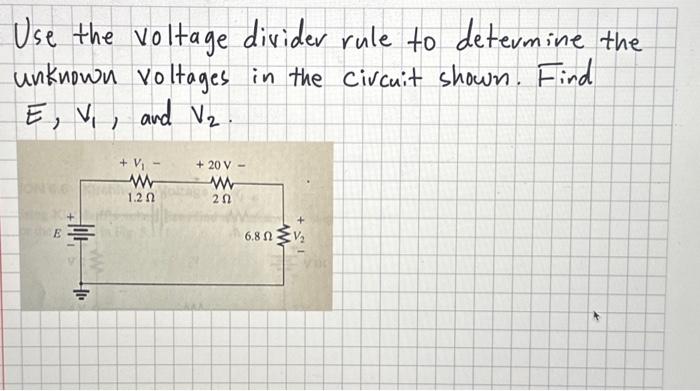 Use the voltage divider rule to determine the
unknown voltages in the circuit shown. Find
E, V₁, and V₂.
+ V₁ − + 20 V −
1.2 Ω 2 Ω
+
E
−
6.8 Ω
+
V₂
−